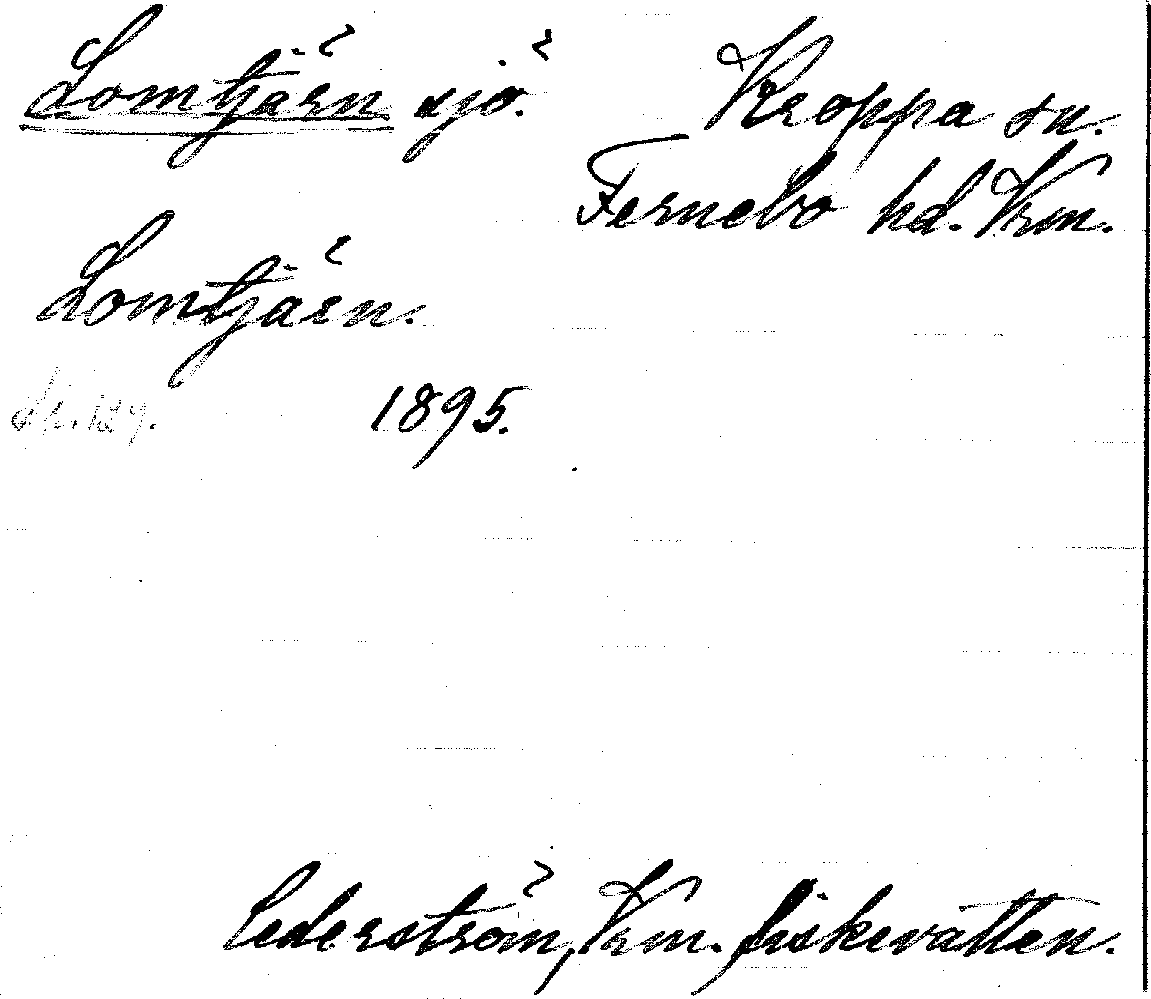 Lomtjärn sjö. Kroppa sn.
Fernebo hd. Vrm.
Lomtjärn.
s. 129. 1895.
Cederström, Vrm. fiskevatten.